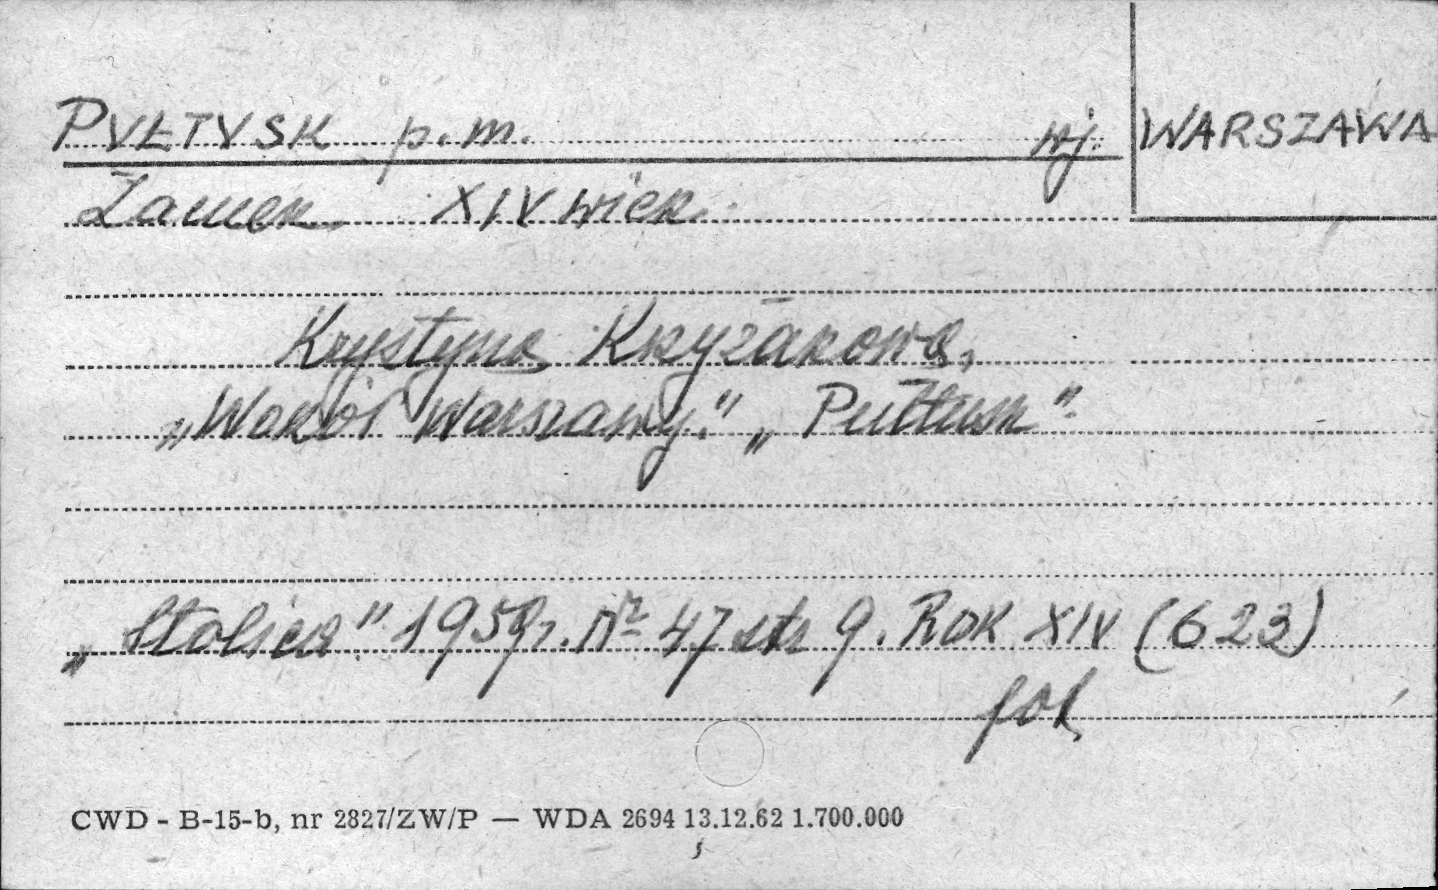 PUŁTUSK p.m. wj. WARSZAWA
Zamek XIV wiek.
Krystyna Krzyżakowa,
„Wokół Warszawy." „Pułtusk"
„Stolica" 1959 r. Nr 47 str 9. Rok XIV (623)
fot.
CWD - B-15-b, nr 2827/ZW/P — WDA 2694 13.12.62 1.700.000